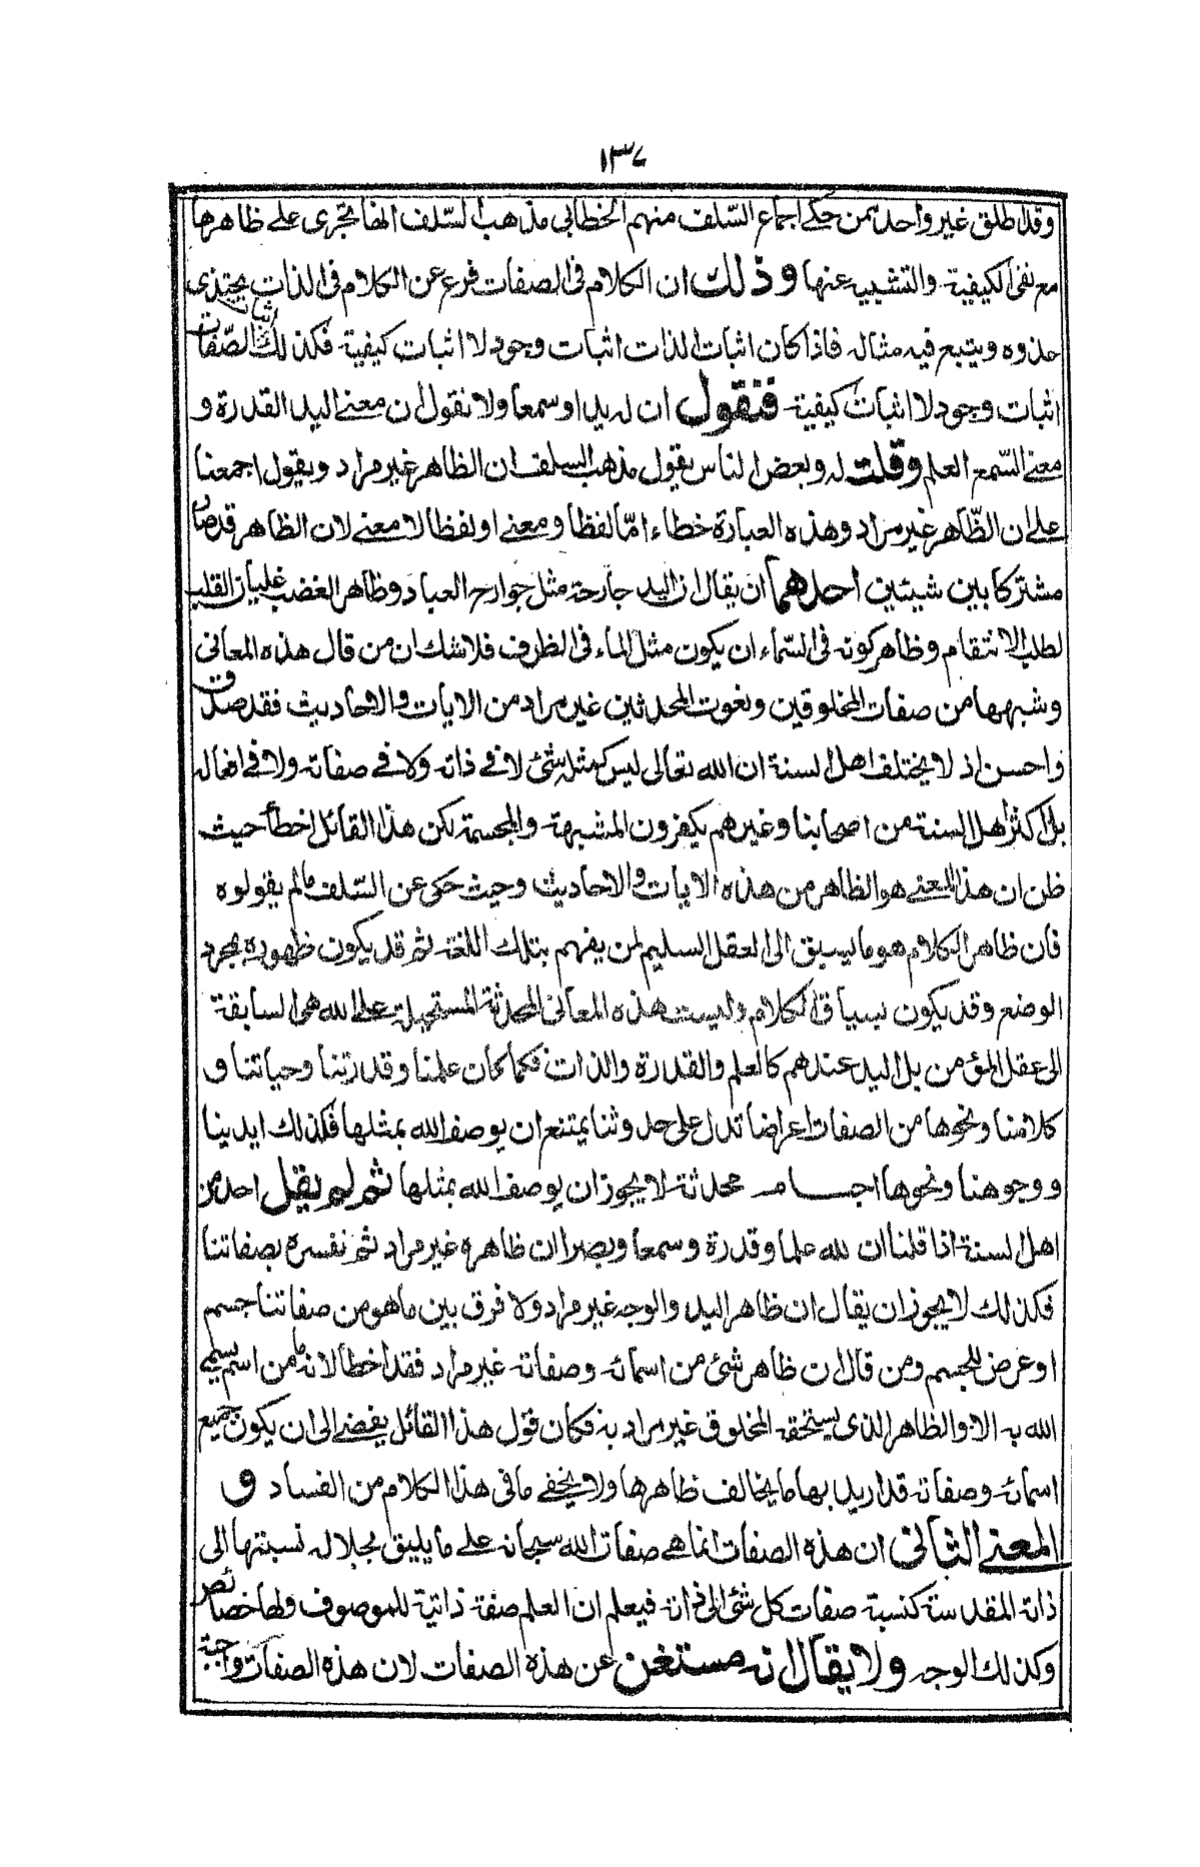 ١٣٧
وقد اطلق غير واحد ممن حكى اجماع السّلف منهم الخطابى مذهب السّلف انها تجرى على ظاهرها
مع نفى الكيفية والتشبيه عنها وذلك ان الكلام فى الصفات فرع عن الكلام فى الذات يحتذى
حذوه ويتبع فيه مثاله فاذا كان اثبات الذات اثبات وجود لا اثبات كيفية فكذلك اثبات الصّفات
اثبات وجود لا اثبات كيفية فنقول ان له يدا وسمعا ولا نقول ان معنى اليد القدرة و
معنى السّمع العلم وقلت له وبعض الناس يقول مذهب السلف ان الظاهر غير مراد ويقول اجمعنا
على ان الظّاهر غير مراد وهذه العبارة خطاء امّا لفظا ومعنى او لفظا لا معنى لان الظاهر قد صار
مشتركا بين شيئين احدهما ان يقال ان اليد جارحة مثل جوارح العباد وظاهر الغضب غليان القلب
لطلب الانتقام وظاهر كونه فى السّماء ان يكون مثل الماء فى الظرف فلا شك ان من قال هذه المعانى
وشبهها من صفات المخلوقين ونعوت المحدثين غير مراد من الايات والاحاديث فقد صدق
واحسن اذ لا يختلف اهل السنة ان الله تعالى ليس كمثله شئ لا فى ذاته ولا فى صفاته ولا فى افعاله
بل اكثر اهل السنة من اصحابنا وغيرهم يكفرون المشبهة والمجسمة لكن هذا القائل اخطأ حيث
ظن ان هذا المعنى هو الظاهر من هذه الايات والاحاديث وحيث حكى عن السّلف ما لم يقولوه
فان ظاهر الكلام هو ما يسبق الى العقل السليم لمن يفهم بتلك اللغة ثم قد يكون ظهوره بمجرد
الوضع وقد يكون بسياق الكلام وليست هذه المعانى المحدثة المستحيلة على الله هى السابقة
الى عقل المؤمن بل اليد عندهم كالعلم والقدرة والذات فكما كان علمنا وقدرتنا وحياتنا و
كلامنا ونحوها من الصفات اعراضا تدل على حدوثنا يمتنع ان يوصف الله بمثلها فكذلك ايدينا
ووجوهنا ونحوها اجسام محدثة لا يجوز ان يوصف الله بمثلها ثم لم يقل احد من
اهل السنة اذا قلنا ان لله علما وقدرة وسمعا وبصرا ان ظاهره غير مراد ثم نفسره بصفاتنا
فكذلك لا يجوز ان يقال ان ظاهر اليد والوجه غير مراد ولا فرق بين ما هو من صفاتنا جسم
او عرض للجسم ومن قال ان ظاهر شئ من اسمائه وصفاته غير مراد فقد اخطا لانه ما من اسم يسمى
الله به الا والظاهر الذى يستحقه المخلوق غير مراد به فكان قول هذا القائل يفضى الى ان يكون جميع
اسمائه وصفاته قد اريد بها ما يخالف ظاهرها ولا يخفى ما فى هذا الكلام من الفساد و
المعنى الثانى ان هذه الصفات انما هى صفات الله سبحانه على ما يليق بجلاله نسبتها الى
ذاته المقدسة كنسبة صفات كل شئ الى ذاته فيعلم ان العلم صفة ذاتية للموصوف ولها خصائص
وكذلك الوجه ولا يقال انه مستغن عن هذه الصفات لان هذه الصفات واجبة